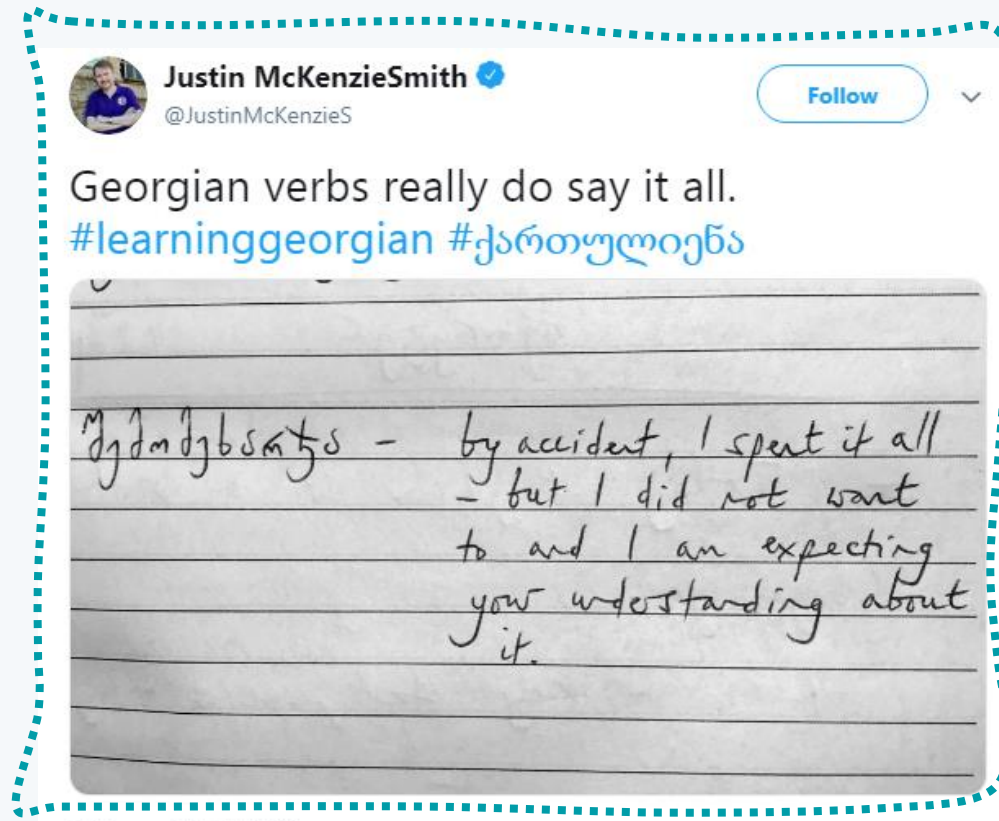 Justin McKenzieSmith
@JustinMcKenzieS
Follow
Georgian verbs really do say it all.
#learninggeorgian #ქართულიენა
შემომეხარჯა - by accident, I spent it all
- but I did not want
to and I am expecting
your understanding about
it.